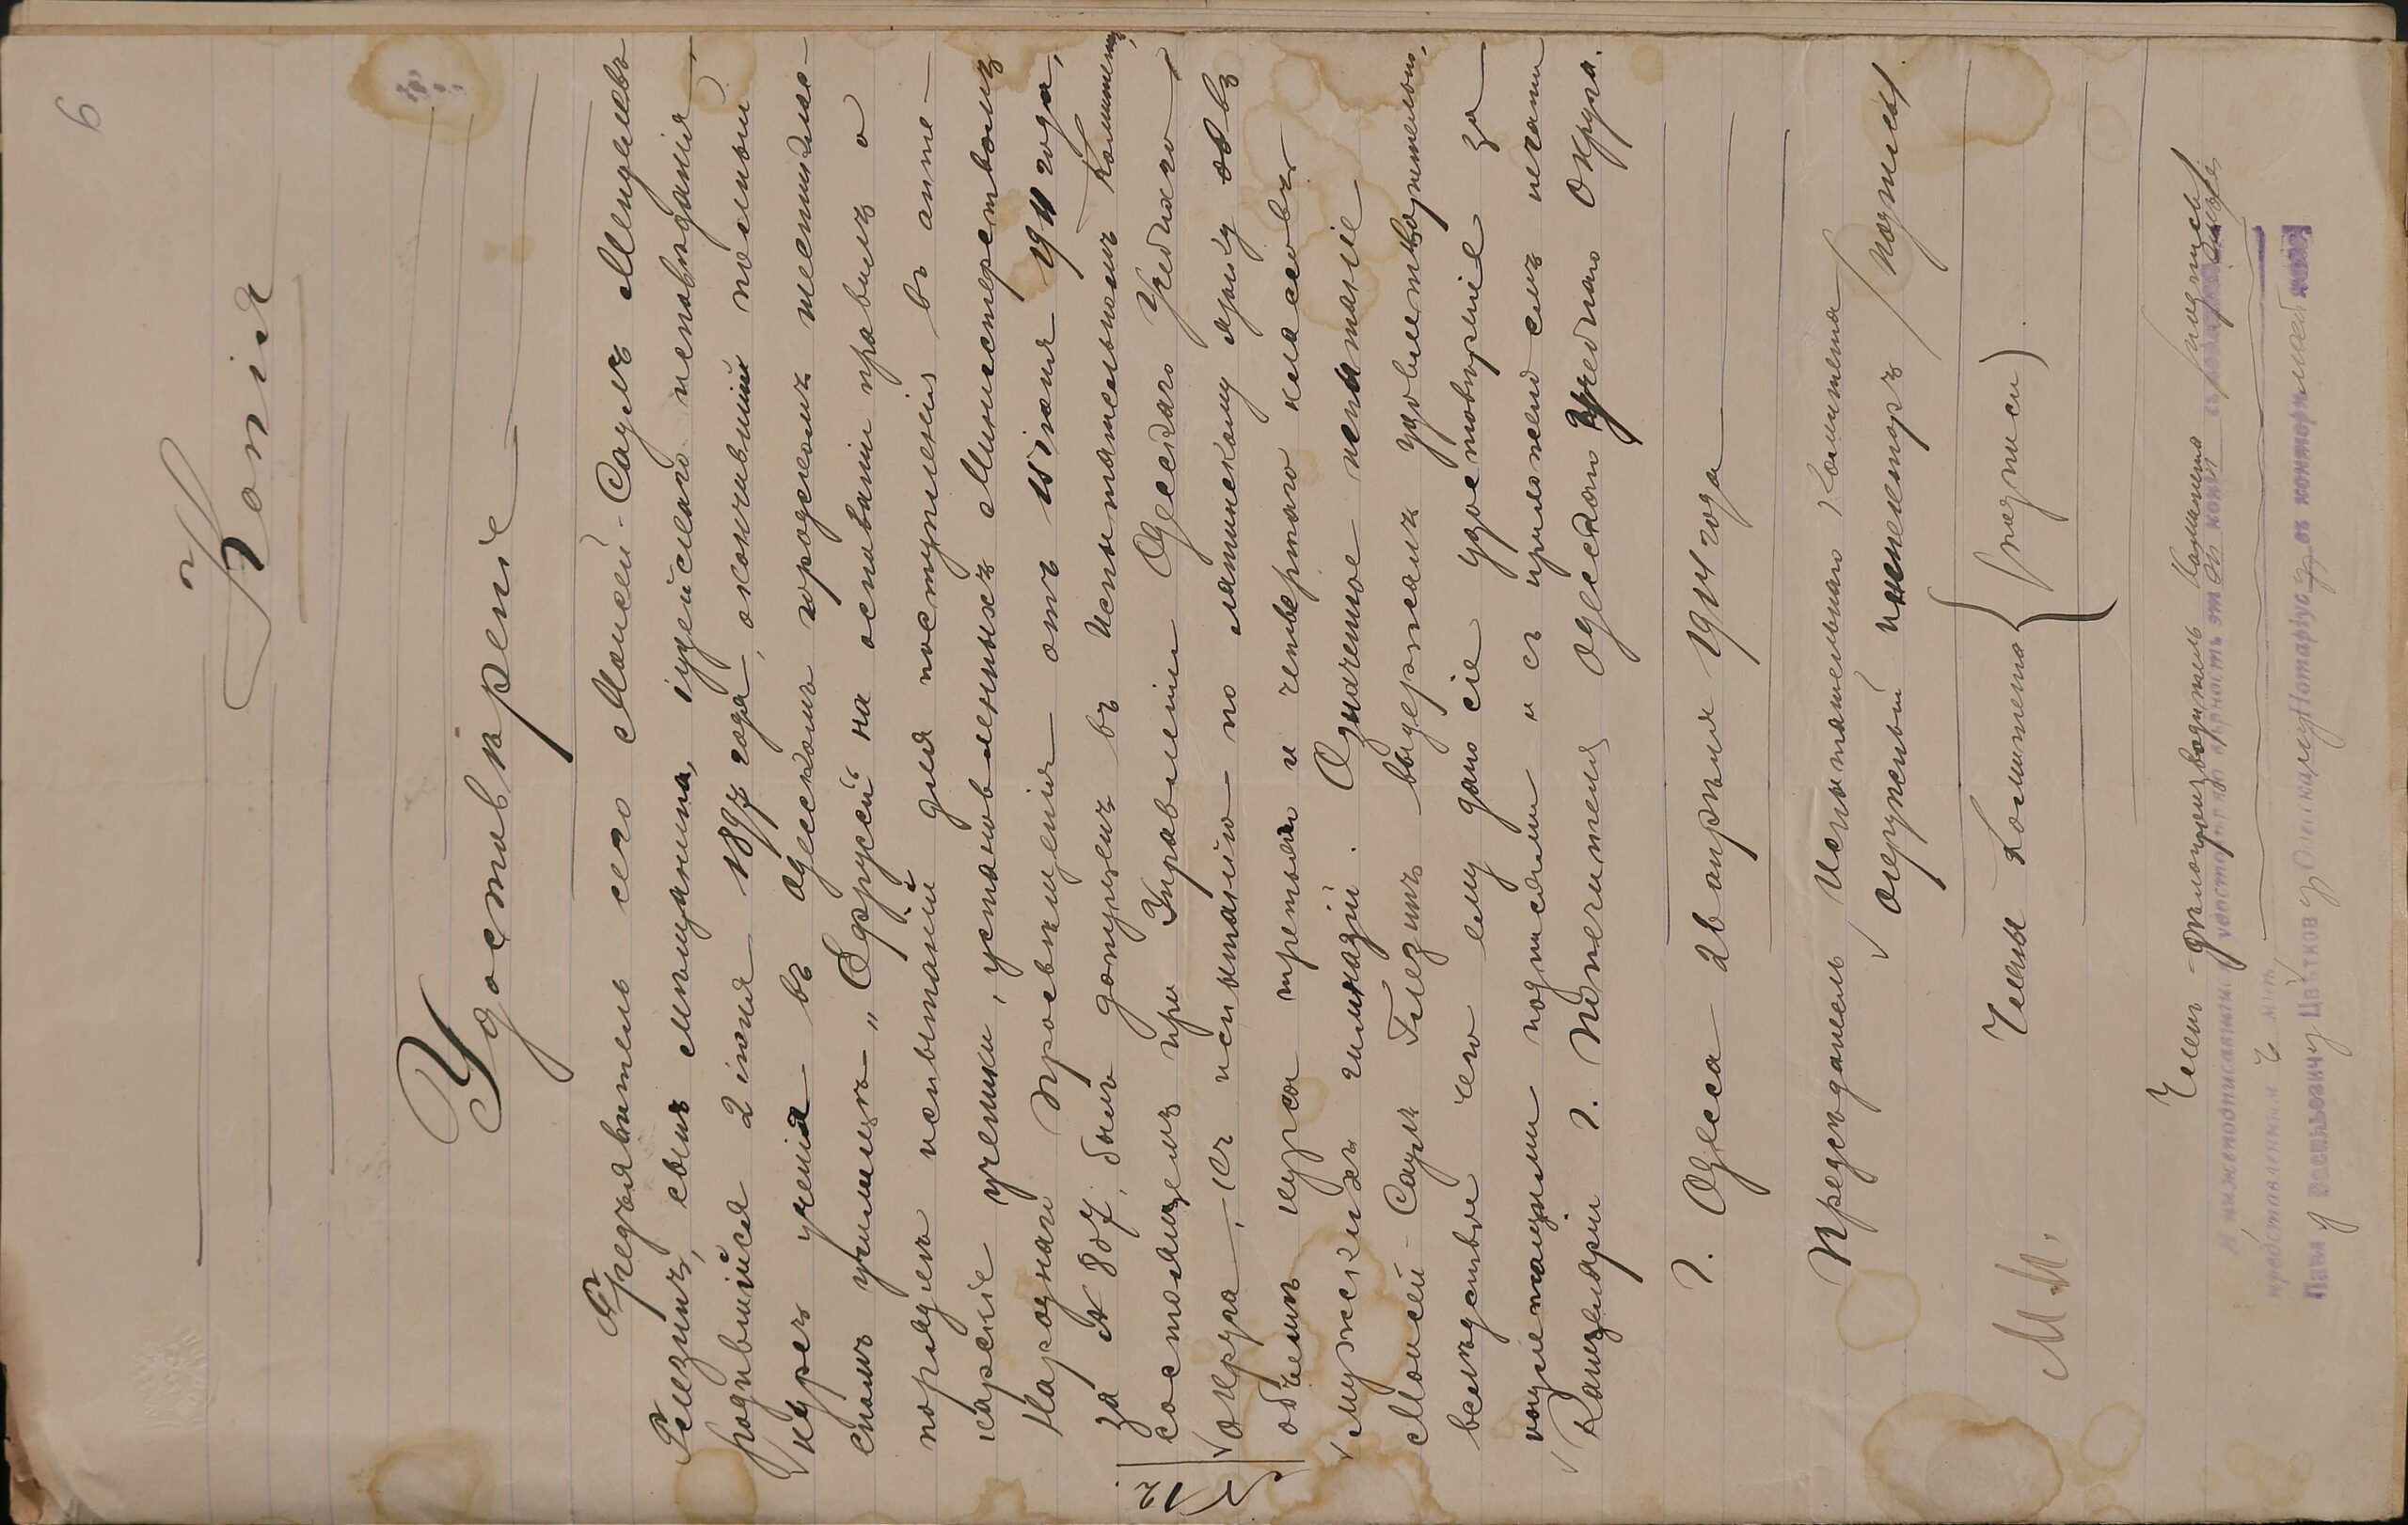 6
Копія
Удостовѣреніе
Предъявитель сего Моисей-Саулъ Менделевъ
Глезинъ, сынъ мѣщанина, іудейскаго исповѣданія,
родившійся 2 іюня 1897 года, окончившій полный
курсъ ученія въ Одесскомъ городскомъ шестикласс-
номъ училищѣ „Эфрусси“ на основаніи правилъ о
порядкѣ испытаній для поступленія въ апте-
карскіе ученики, установленныхъ Министерствомъ
Народнаго Просвѣщенія отъ 18 іюня 1911 года,
за № 807, былъ допущенъ въ Испытательномъ Комитетѣ,
состоящемъ при Управленіи Одесскаго Учебнаго
Округа, къ испытанію по латинскому языку въ
объемѣ курса третьяго и четвертаго классовъ
мужскихъ гимназій. Означенное испытаніе
Моисей-Саулъ Глезинъ выдержалъ удовлетворительно,
вслѣдствіе чего ему дано сіе удостовѣреніе за
надлежащими подписями и съ приложеніемъ печати
Канцеляріи г. Попечителя Одесскаго Учебнаго Округа.
г. Одесса 2 апрѣля 1914 года
Предсѣдатель Испытательнаго Комитета
Окружный инспекторъ (подпись)
Члены Комитета (подписи)
М.П.
Членъ-дѣлопроизводитель Комитета подпись
Я, нижеподписавшійся, удостовѣряю вѣрность этой копіи съ
представленнымъ мнѣ,
Павлу Васильевичу Цвѣткову Одесскому Нотаріусу, въ конторѣ моей